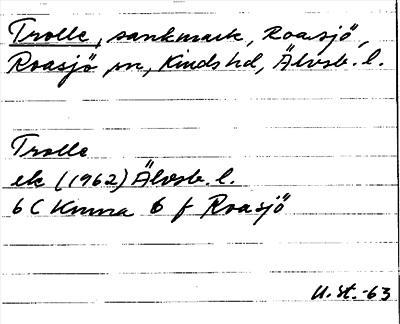 Trolle, sankmark, Roasjö,
Roasjö sn, Kinds hd, Älvsb. l.
Trolle
ek (1962) Älvsb. l.
6 C Kinna 6 f Roasjö
U. st. -63